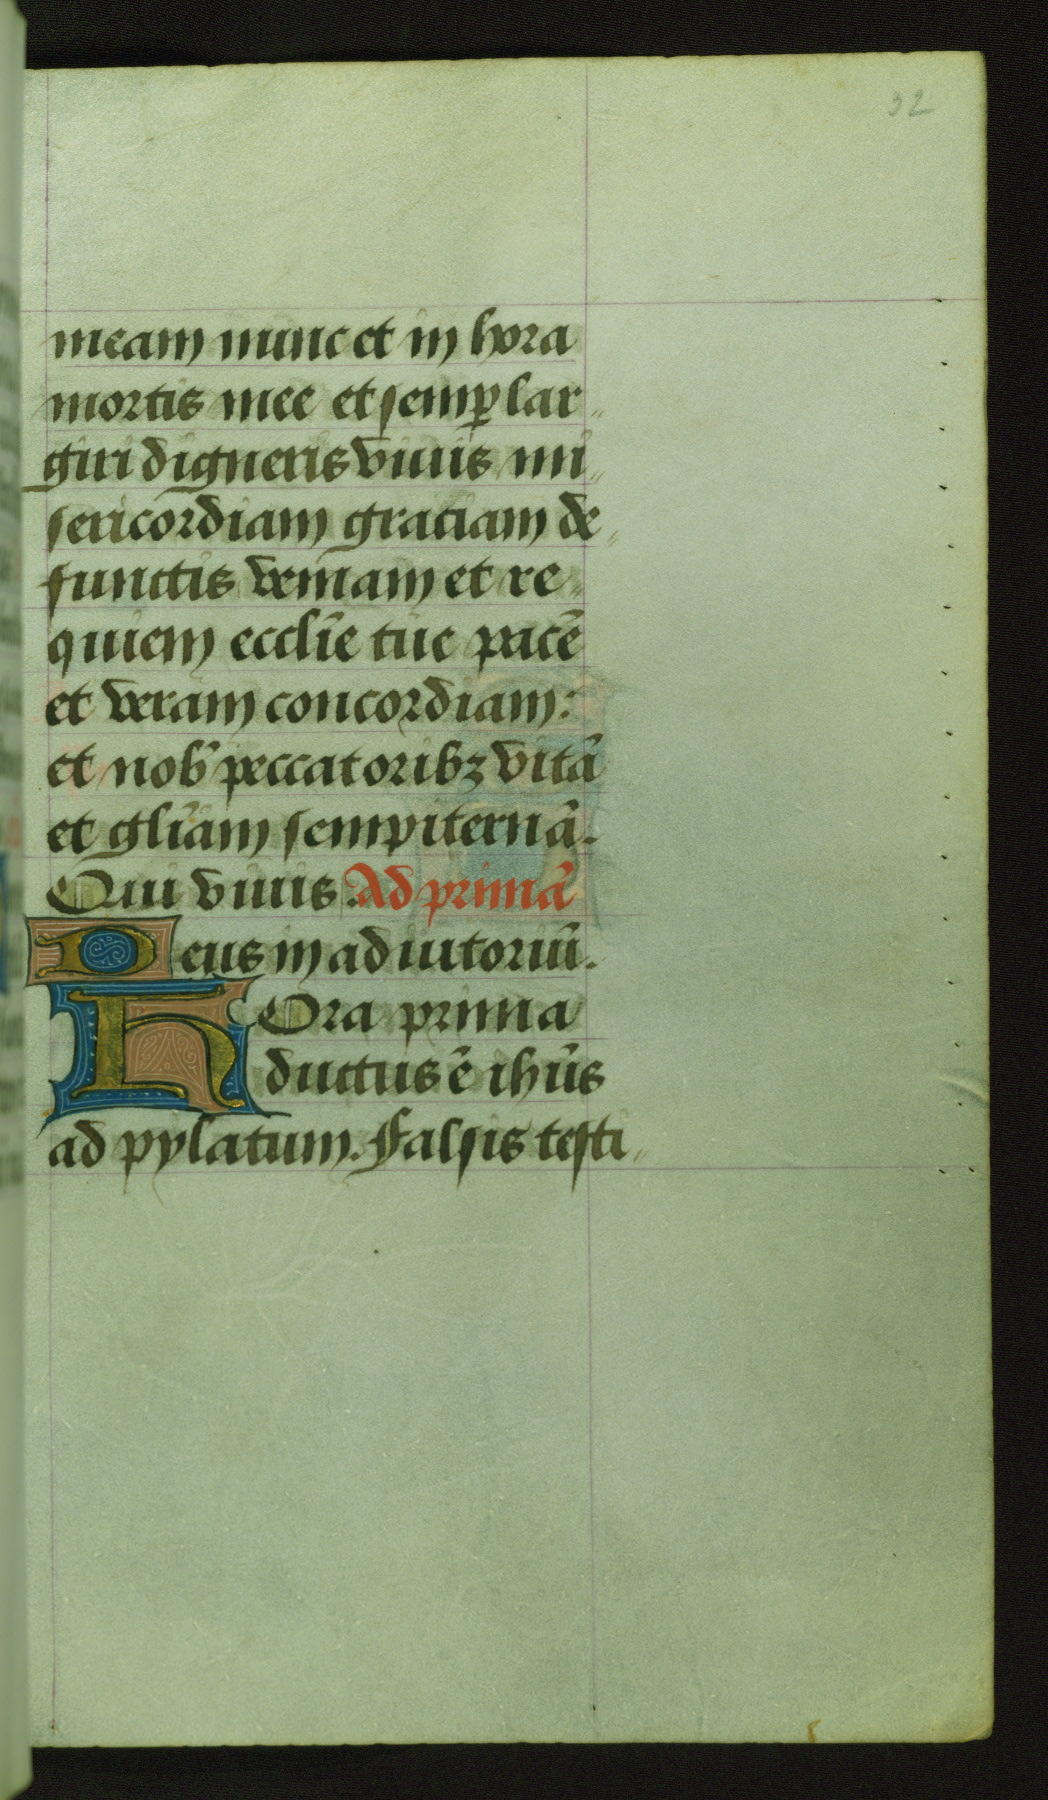 32
meam nunc et in hora
mortis mee et semꝑ lar
giri digneris viuis mi
sericordiam graciam de
functis veniam et re
quiem eccl̄ie tue pacē
et veram concordiam:
et nob̄ peccatoribꝫ vitā
et gl̄iam sempiternā.
Qui viuis. Ad primā
Deus in adiutoriū.
Hora prima
ductus ē ihūs
ad pylatum. Falsis testi